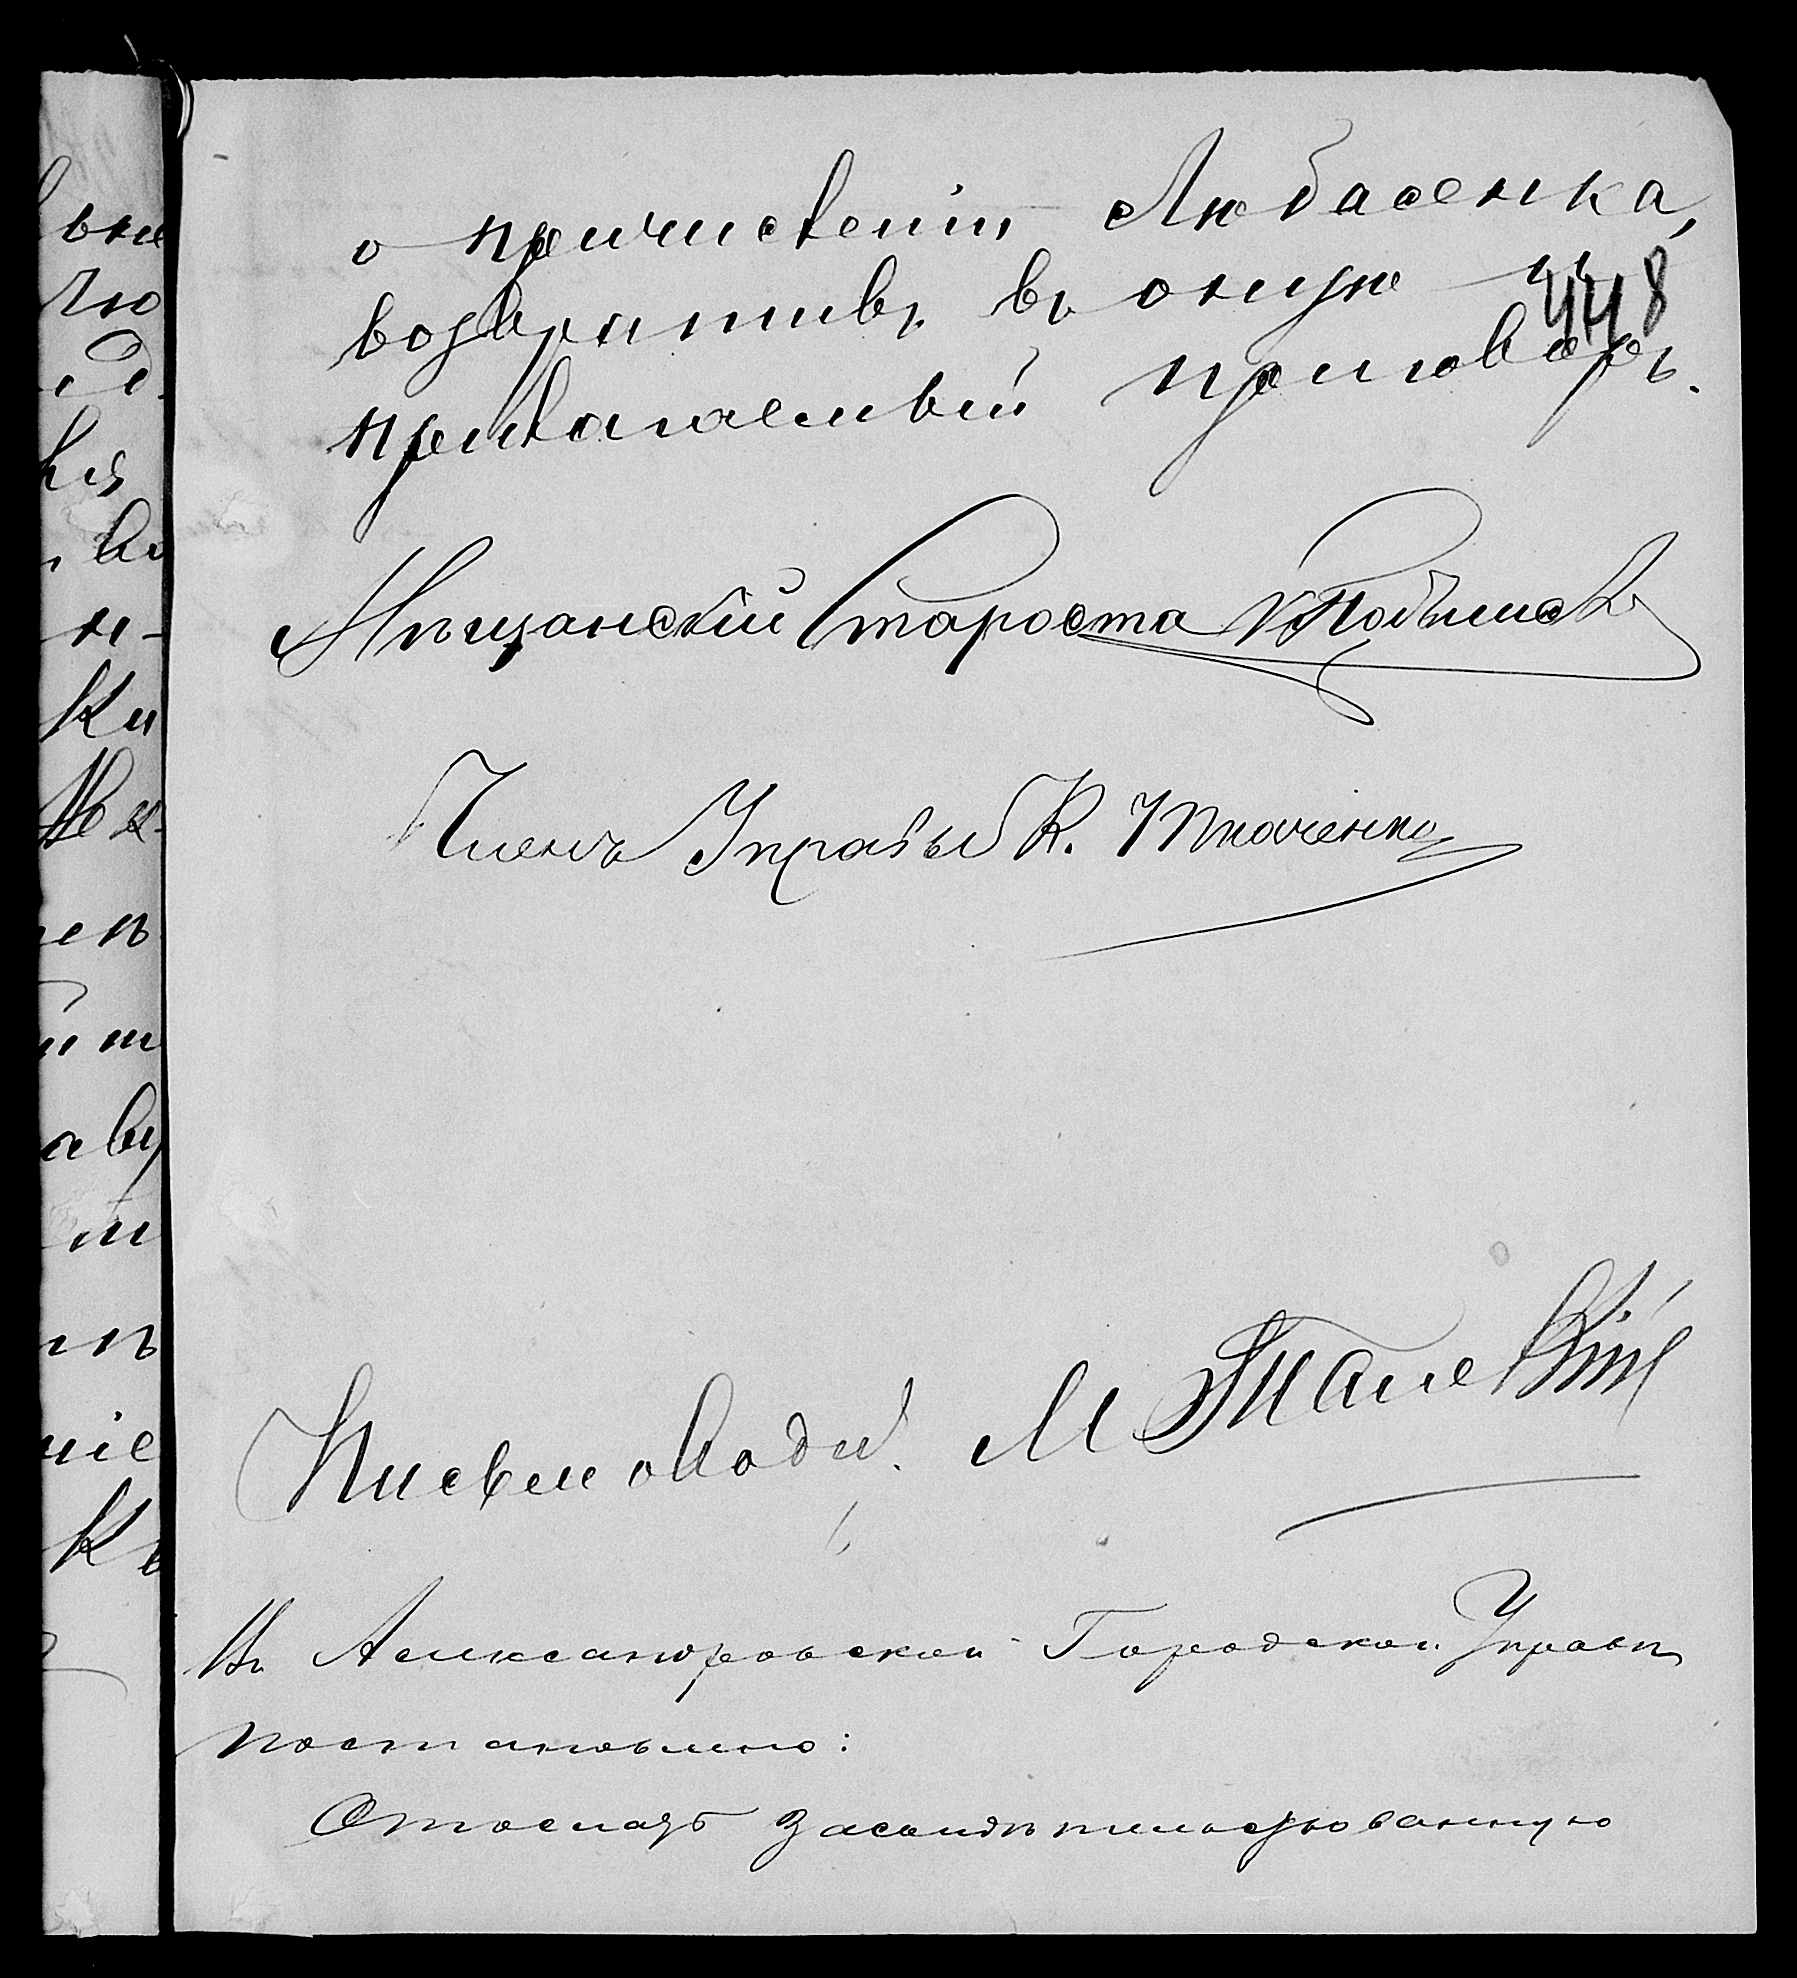 о причисленіи Любасенка,
возвративъ въ оную и
448
прилагаемый приговоръ.
Мѣщанскій Староста
Членъ Управы К. Ткаченко
Письмовод. М
Въ Александровской Городской Управѣ
постановлено:
Отослать засвидѣтельствованную